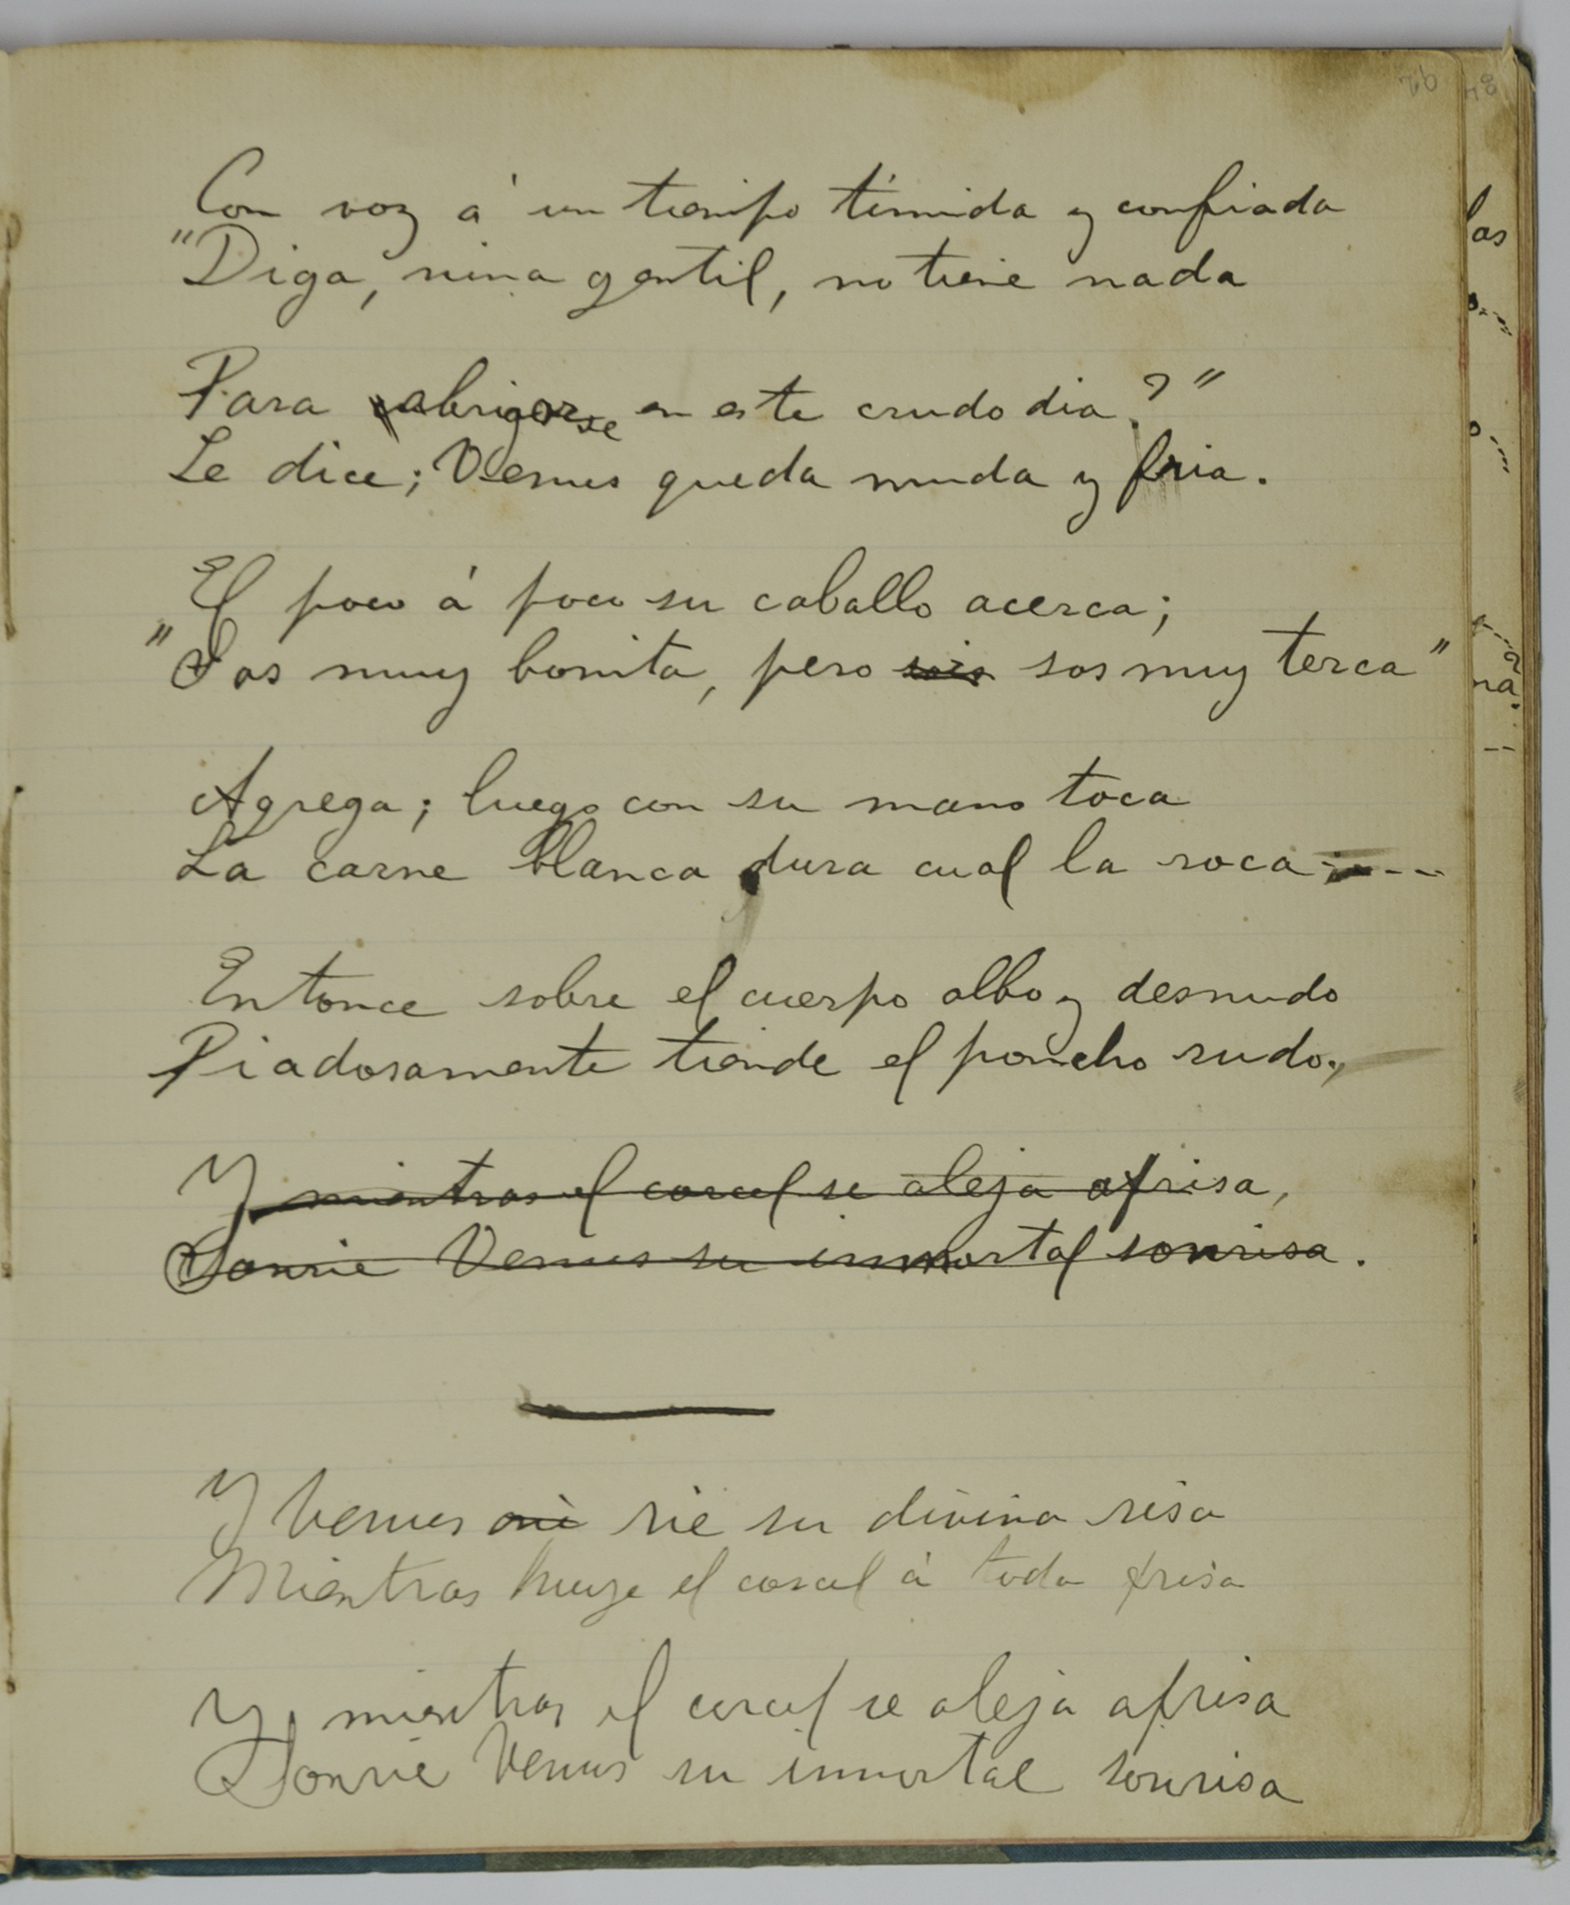 Con voz á un tiempo tímida y confiada
"Diga, nina gentil, no tiene nada
Para abrigarse en este crudo dia?"
Le dice; Venus queda muda y fria.
El poco á poco su caballo acerca;
"Sos muy bonita, pero sois sos muy terca"
Agrega; luego con su mano toca
La carne blanca dura cual la roca....
Entonce sobre el cuerpo albo y desnudo
Piadosamente tiende el poncho rudo.,
Y mientras el corcel se aleja aprisa,
Sonrie Venus su inmortal sonrisa.
Y Venus rie su divina risa
Mientras huye el corcel á toda prisa
Y mientras el corcel se aleja aprisa
Sonrie Venus su inmortal sonrisa
las